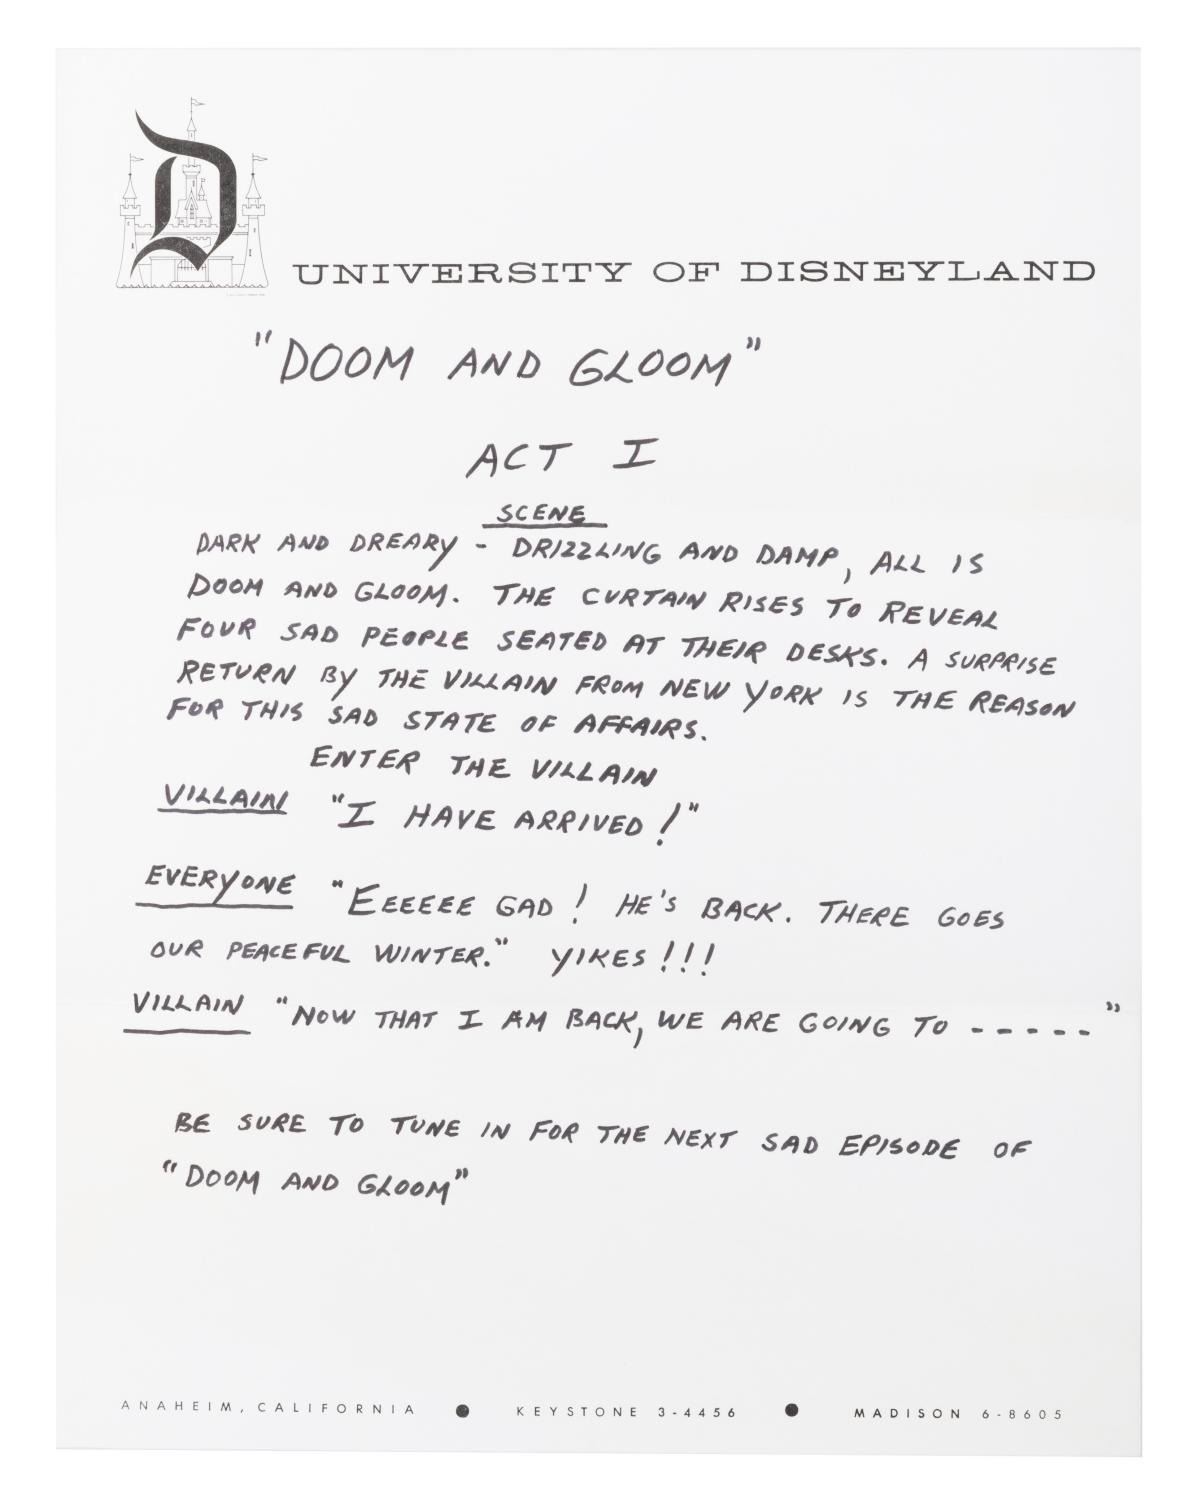 D
UNIVERSITY OF DISNEYLAND
"DOOM AND GLOOM"
ACT I
SCENE
DARK AND DREARY - DRIZZLING AND DAMP, ALL IS
DOOM AND GLOOM. THE CURTAIN RISES TO REVEAL
FOUR SAD PEOPLE SEATED AT THEIR DESKS. A SURPRISE
RETURN BY THE VILLAIN FROM NEW YORK IS THE REASON
FOR THIS SAD STATE OF AFFAIRS.
ENTER THE VILLAIN
VILLAIN "I HAVE ARRIVED!"
EVERYONE "EEEEEE GAD! HE'S BACK. THERE GOES
OUR PEACEFUL WINTER." YIKES!!!
VILLAIN "NOW THAT I AM BACK, WE ARE GOING TO - - - - -"
BE SURE TO TUNE IN FOR THE NEXT SAD EPISODE OF
"DOOM AND GLOOM"
ANAHEIM, CALIFORNIA ● KEYSTONE 3-4456 ● MADISON 6-8605